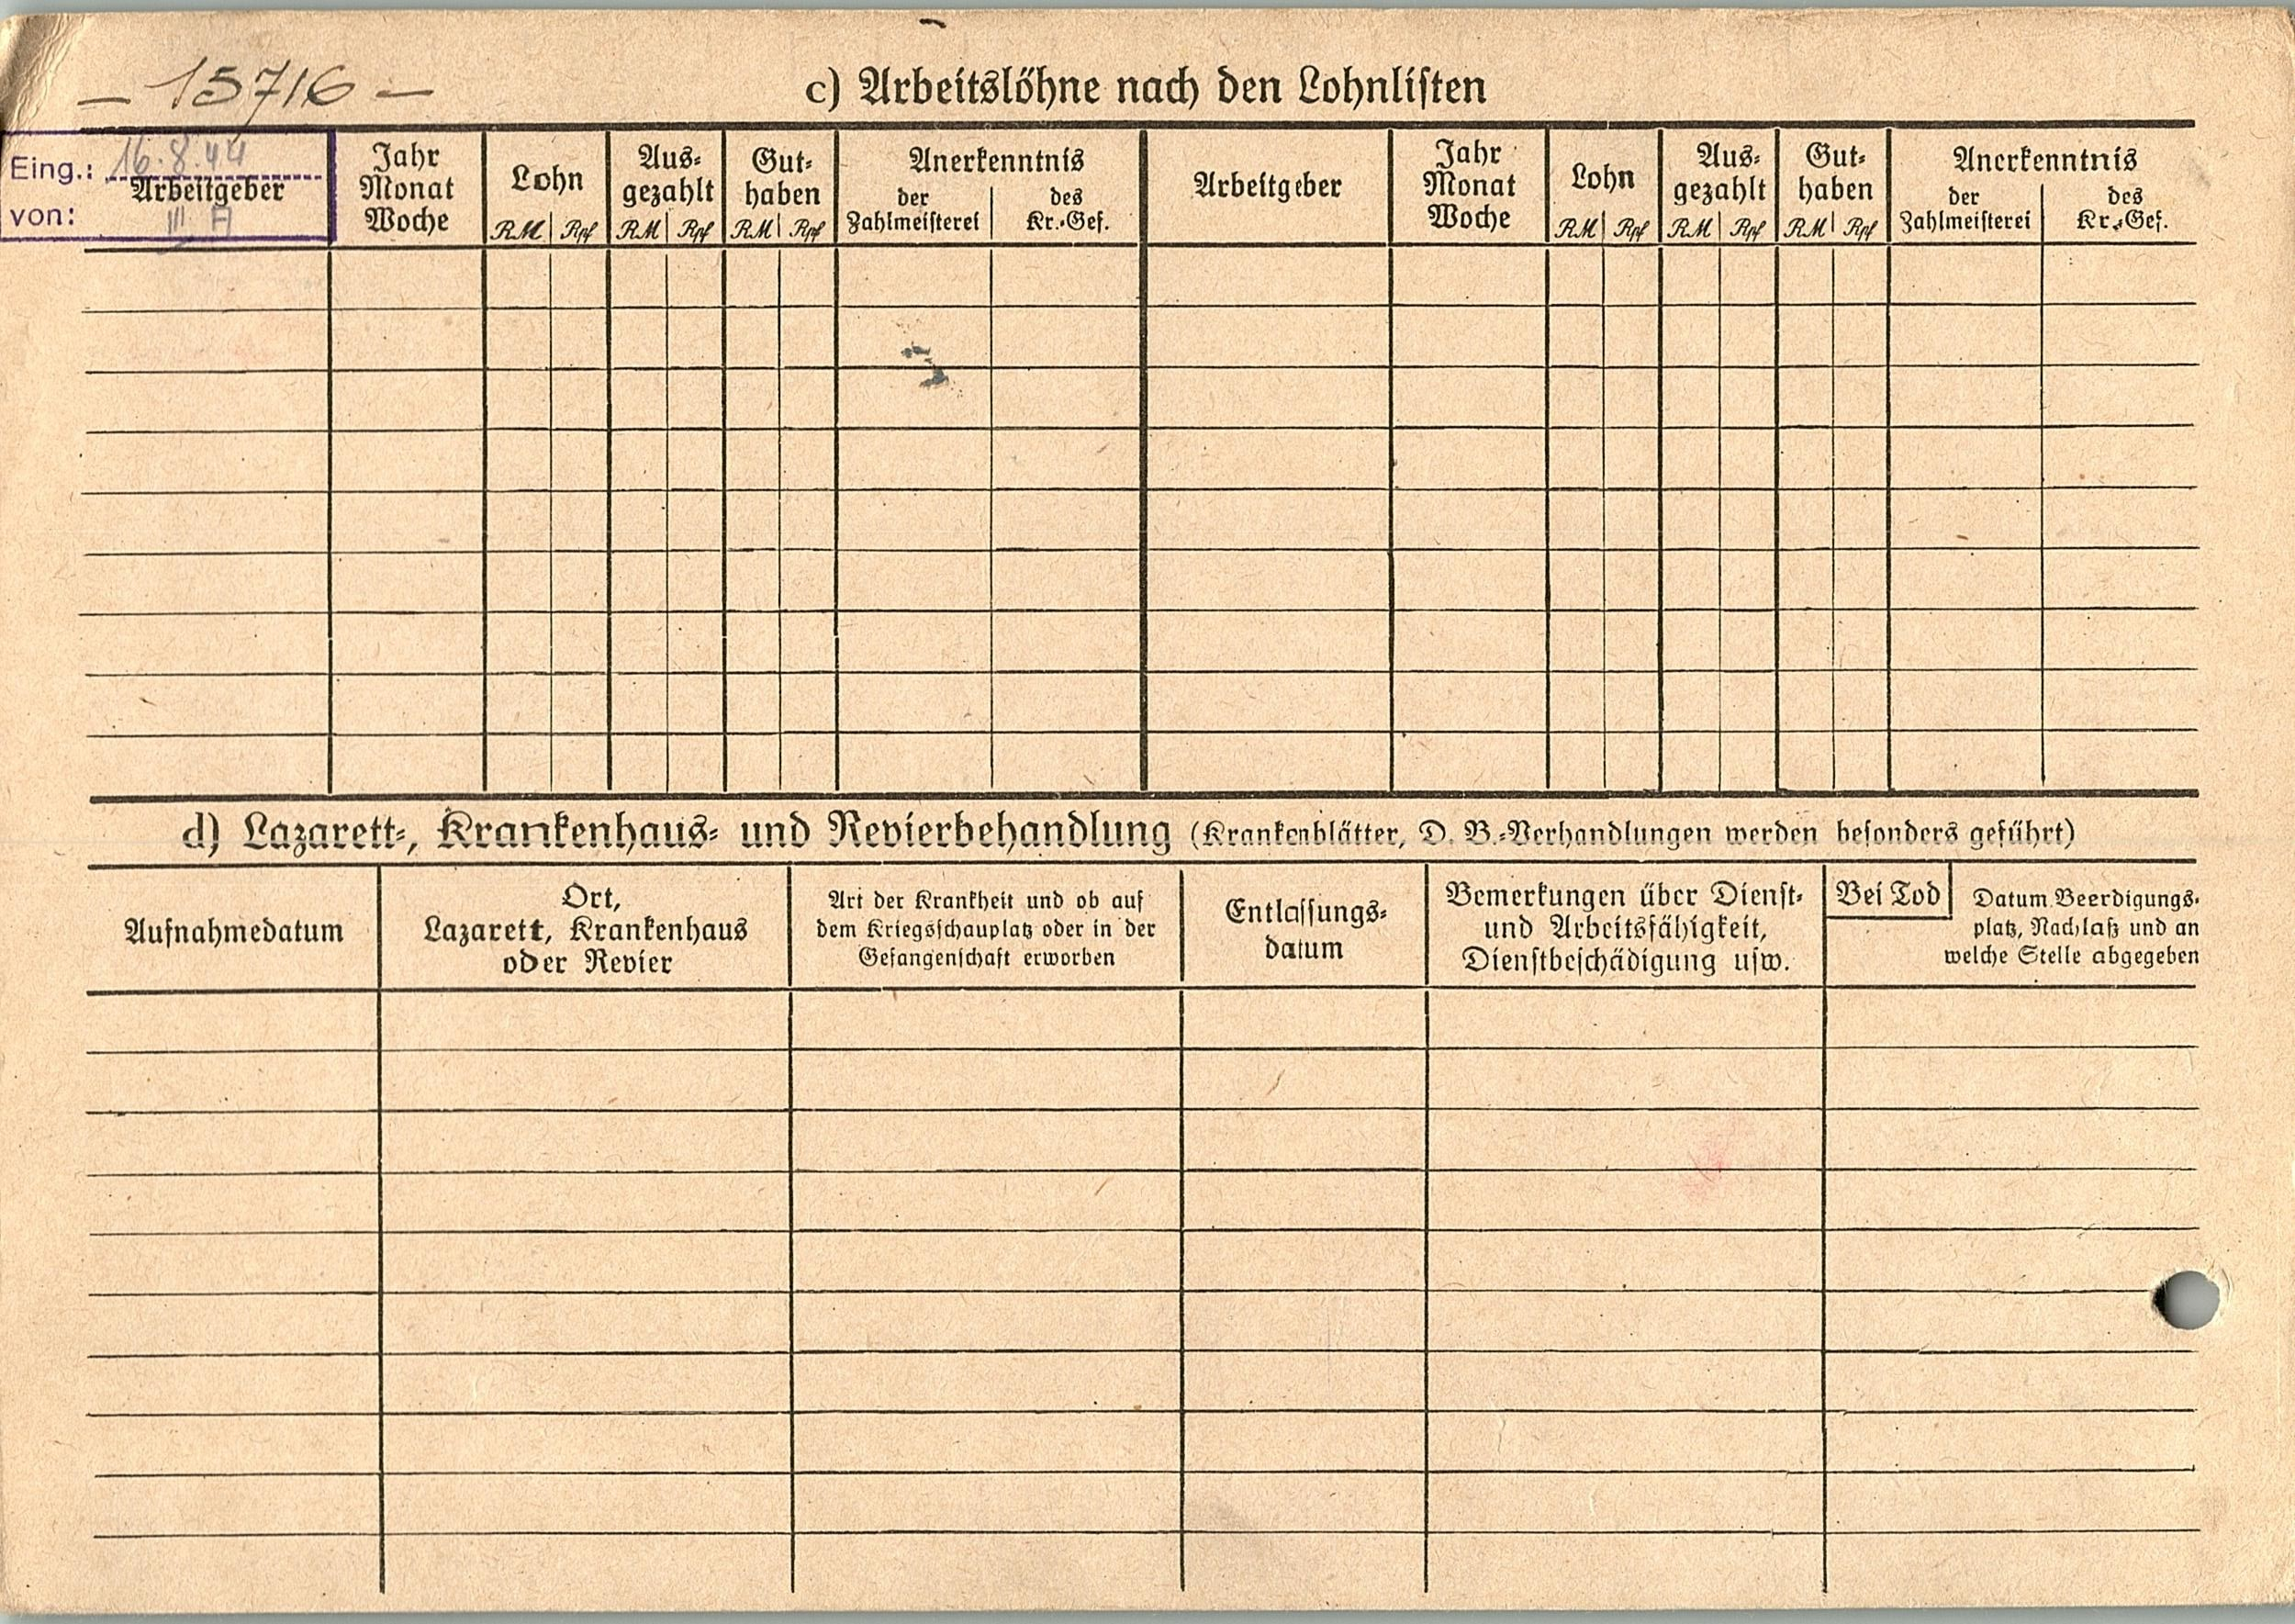 – 15716 –
c) Arbeitslöhne nach den Lohnlisten
Eing.: 16.8.44
von: III A
Arbeitgeber
Jahr
Monat
Woche
Lohn
RM Rpf
Aus-
gezahlt
RM Rpf
Gut-
haben
RM Rpf
Anerkenntnis
der
Zahlmeisterei
des
Kr.-Gef.
Arbeitgeber
Jahr
Monat
Woche
Lohn
RM Rpf
Aus-
gezahlt
RM Rpf
Gut-
haben
RM Rpf
Anerkenntnis
der
Zahlmeisterei
des
Kr.-Gef.
d) Lazarett-, Krankenhaus- und Revierbehandlung (Krankenblätter, D. B.-Verhandlungen werden besonders geführt)
Aufnahmedatum
Ort,
Lazarett, Krankenhaus
oder Revier
Art der Krankheit und ob auf
dem Kriegsschauplatz oder in der
Gefangenschaft erworben
Entlassungs-
datum
Bemerkungen über Dienst-
und Arbeitsfähigkeit,
Dienstbeschädigung usw.
Bei Tod
Datum Beerdigungs-
platz, Nachlaß und an
welche Stelle abgegeben